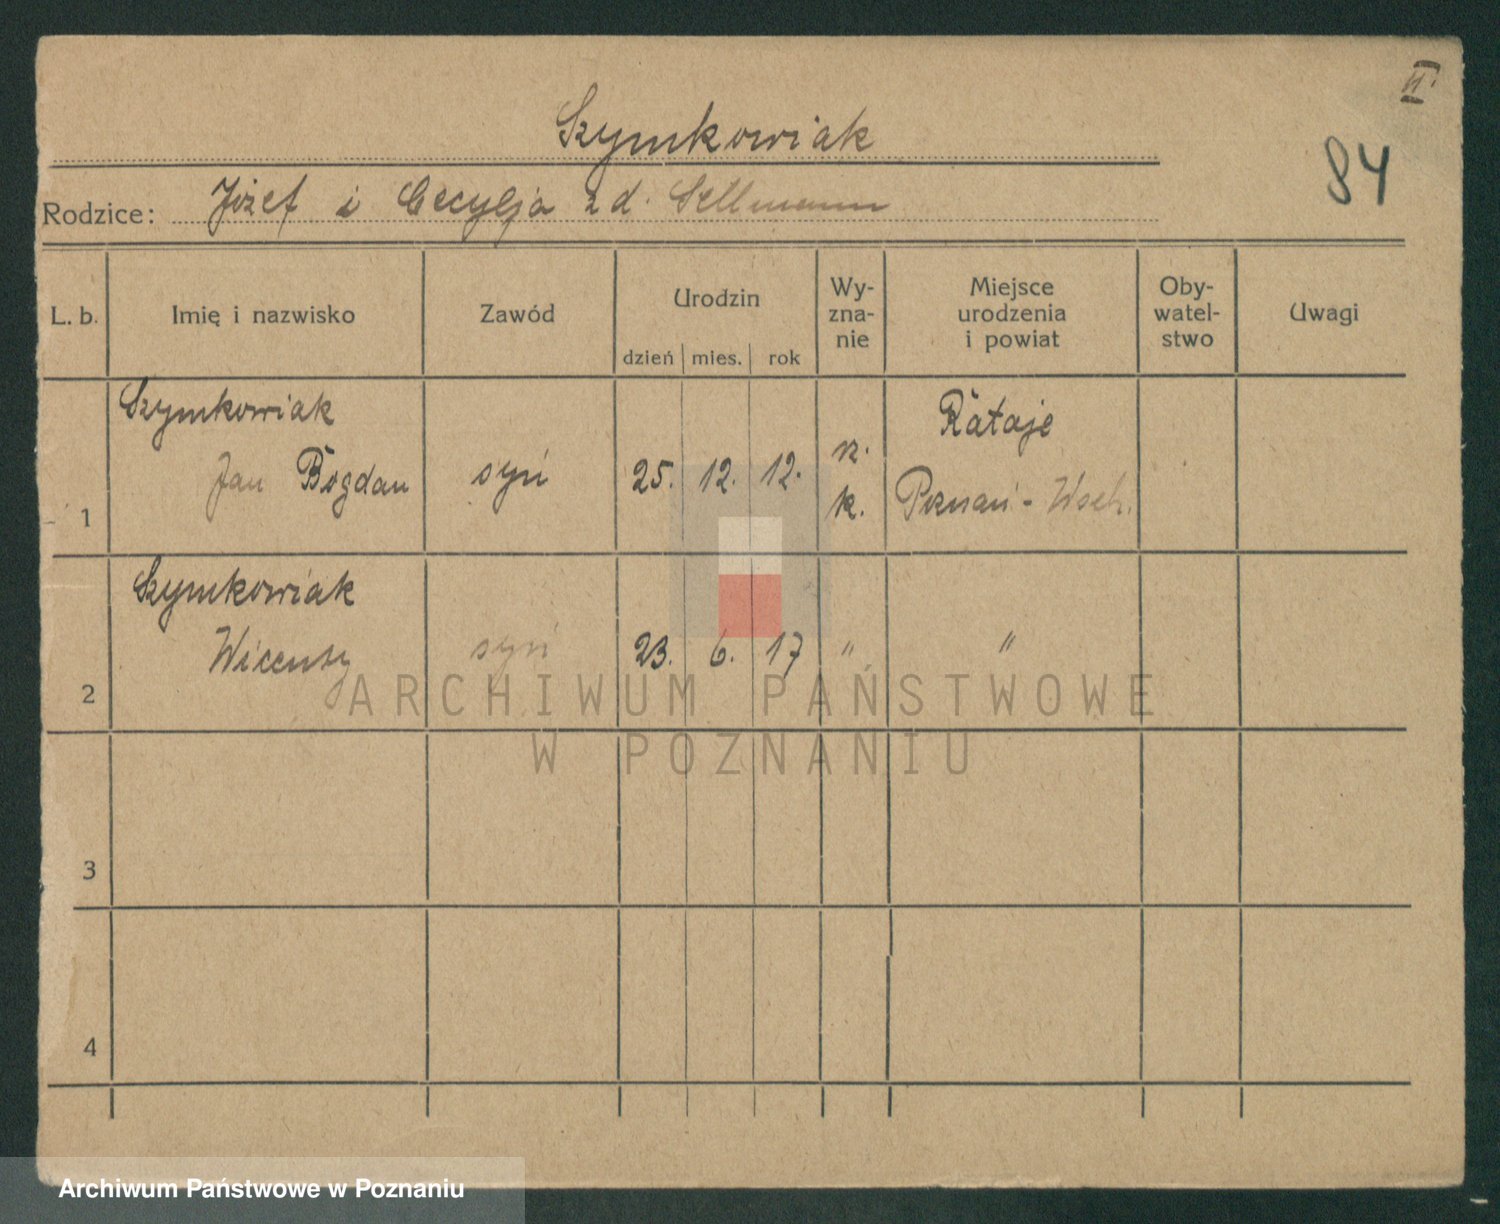 II.
Szymkowiak
84
Rodzice: Józef i Cecylja z d. Sellmann
L. b. Imię i nazwisko Zawód Urodzin dzień mies. rok Wy-zna-nie Miejsce urodzenia i powiat Oby-watel-stwo Uwagi
Szymkowiak
Jan Bogdan syn 25. 12. 12. rz. k. Rataje
1 Poznań - Wsch.
Szymkowiak
Wicenty syn 23. 6. 17 " "
2
ARCHIWUM PAŃSTWOWE
W POZNANIU
3
4
Archiwum Państwowe w Poznaniu